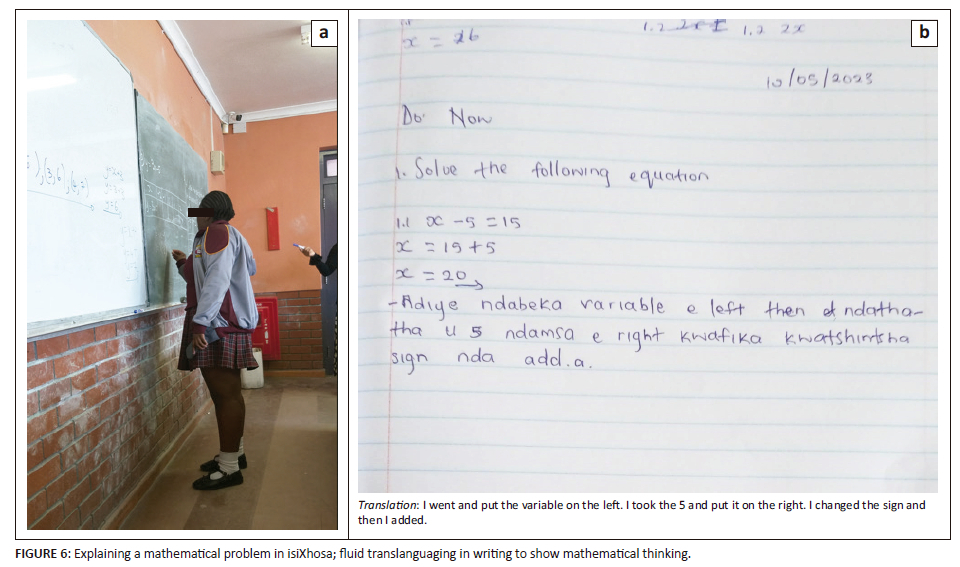 a
(3,6),
b
x =
1.2 2x
10/05/2023
Do Now
1. Solve the following equation
1.1 x - 5 = 15
x = 15 + 5
x = 20
- Adiye ndabeka variable e left then ndatha-
tha u 5 ndamsa e right kwafika kwatshintsha
sign nda add.a.
Translation: I went and put the variable on the left. I took the 5 and put it on the right. I changed the sign and
then I added.
FIGURE 6: Explaining a mathematical problem in isiXhosa; fluid translanguaging in writing to show mathematical thinking.